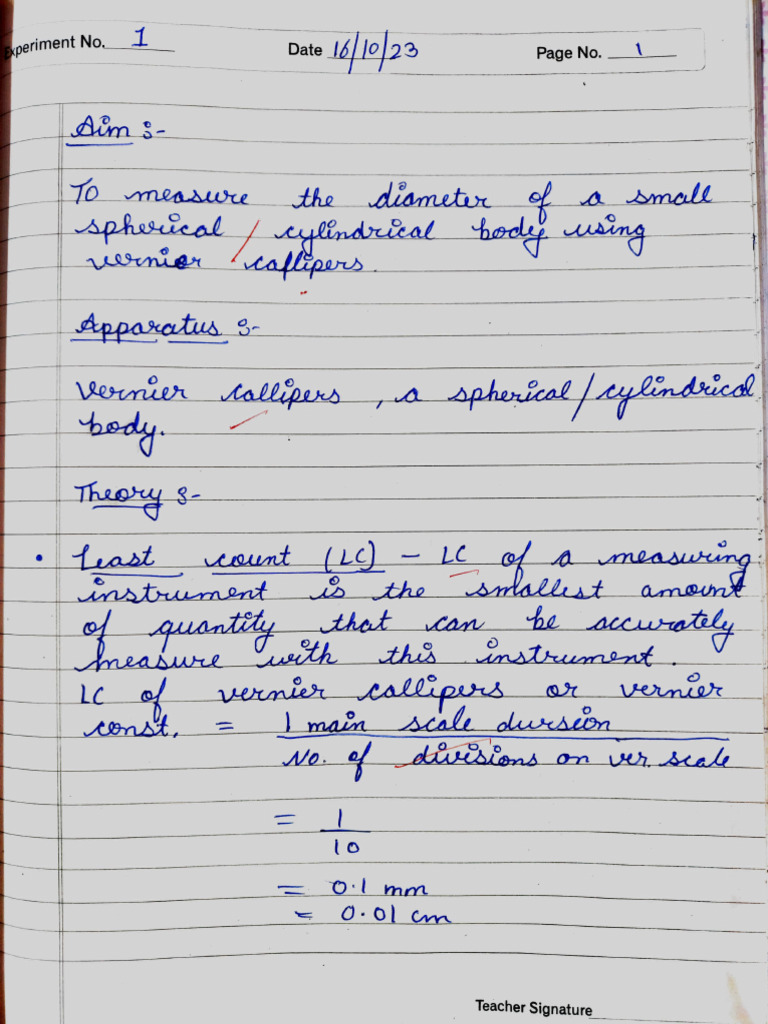 Experiment No. 1 Date 16/10/23 Page No. 1
Aim :-
To measure the diameter of a small
spherical / cylindrical body using
vernier callipers.
Apparatus :-
Vernier callipers, a spherical/cylindrical
body.
Theory :-
• Least count (LC) - LC of a measuring
instrument is the smallest amount
of quantity that can be accurately
measure with this instrument.
LC of vernier callipers or vernier
const. = 1 main scale divrsion
No. of divisions on ver. scale
= 1
10
= 0.1 mm
= 0.01 cm
Teacher Signature